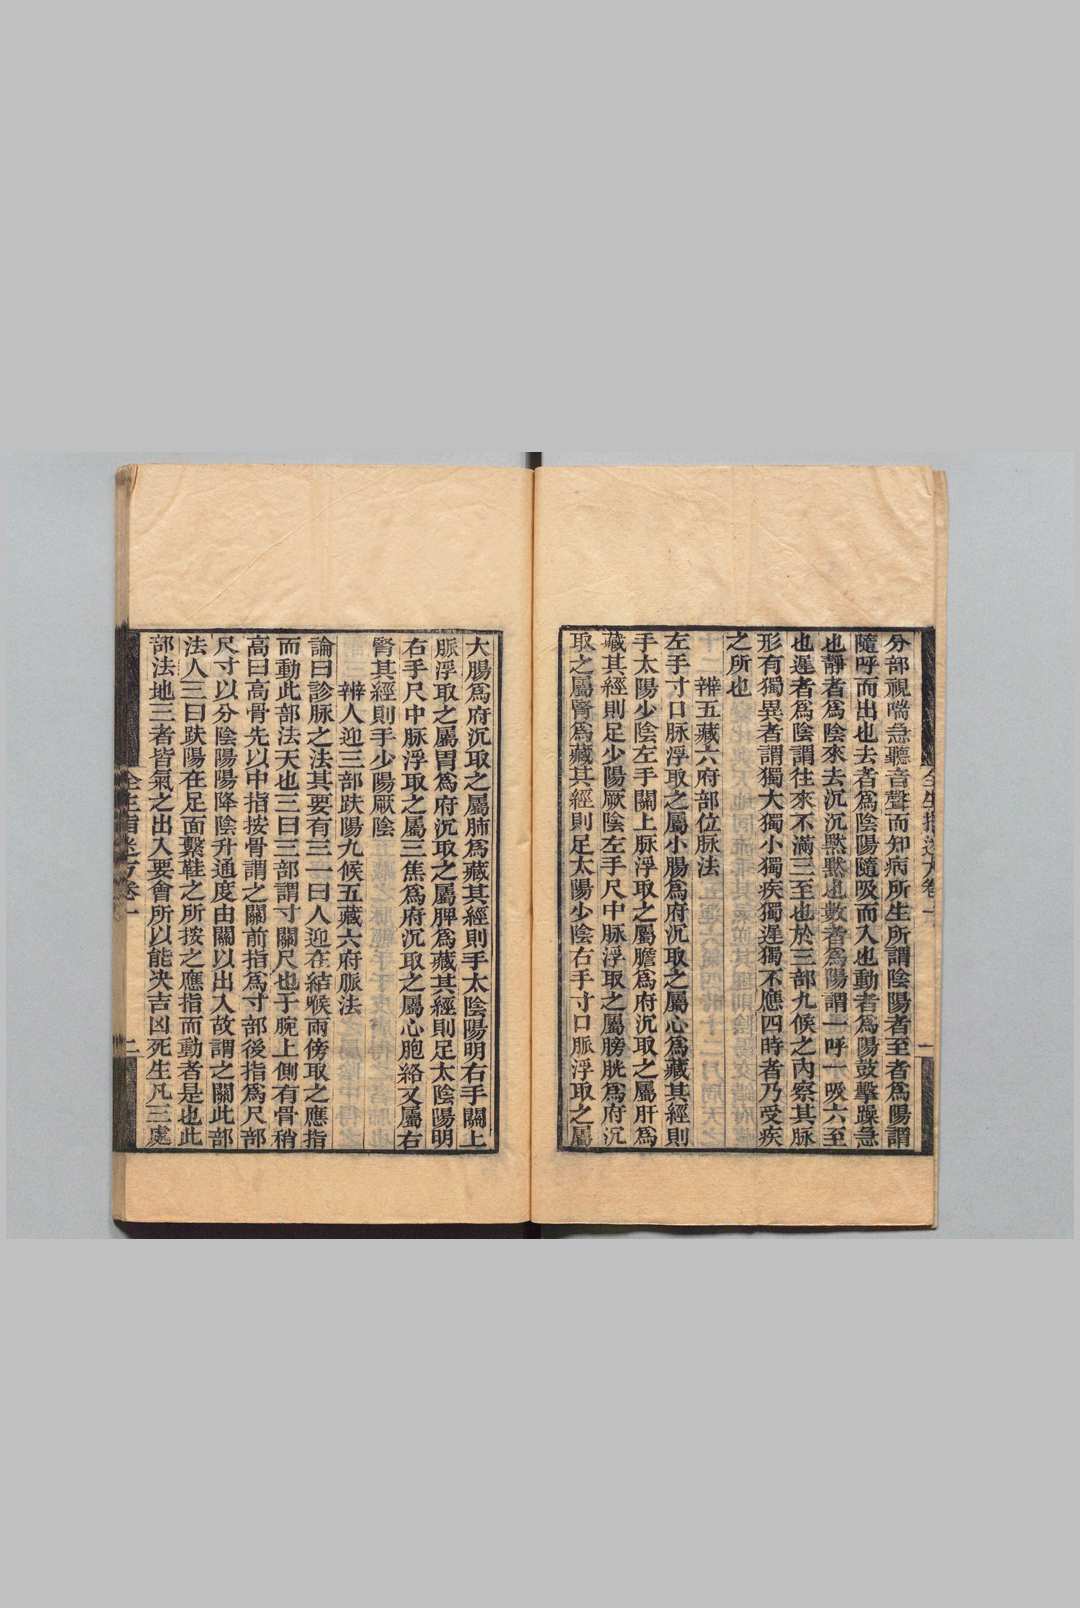 分部視喘急聽音聲而知病所生所謂陰陽者至者為陽謂
隨呼而出也去者為陰陽隨吸而入也動者為陽鼓擊躁急
也靜者為陰來去沉沉默默也數者為陽謂一呼一吸六至
也遲者為陰謂往來不滿三至也於三部九候之內察其脉
形有獨異者謂獨大獨小獨疾獨遲獨不應四時者乃受疾
之所也
辨五藏六府部位脉法
左手寸口脉浮取之屬小腸為府沉取之屬心為藏其經則
手太陽少陰左手關上脉浮取之屬膽為府沉取之屬肝為
藏其經則足少陽厥陰左手尺中脈浮取之屬膀胱為府沉
取之屬腎為藏其經則足太陽少陰右手寸口脈浮取之屬
全生指迷方卷一
一
大腸為府沉取之屬肺為藏其經則手太陰陽明右手關上
脈浮取之屬胃為府沉取之屬脾為藏其經則足太陰陽明
右手尺中脈浮取之屬三焦為府沉取之屬心胞絡又屬右
腎其經則手少陽厥陰
辨人迎三部趺陽九候五藏六府脈法
論曰診脈之法其要有三一曰人迎在結喉兩傍取之應指
而動此部法天也二曰三部謂寸關尺也于腕上側有骨稍
高曰高骨先以中指按骨謂之關前指為寸部後指為尺部
尺寸以分陰陽陽降陰升通度由關以出入故謂之關此部
法人三曰趺陽在足面繫鞋之所按之應指而動者是也此
部法地三者皆氣之出入要會所以能决吉凶死生凡三處
全生指迷方卷一
二